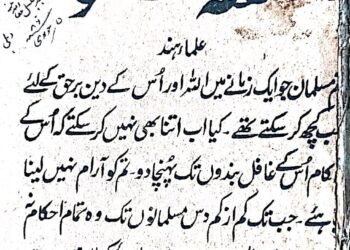 علماء ہند
مسلمان جو ایک زمانے میں اللہ اور اُس کے دین برحق کے لئے
سب کچھ کر سکتے تھے۔ کیا اب اتنا بھی نہیں کر سکتے کہ اُس کے
احکام اُس کے غافل بندوں تک پہنچا دو۔ تم کو آرام نہیں لینا
چاہئے۔ جب تک کم از کم دس مسلمانوں تک وہ تمام احکام نہ